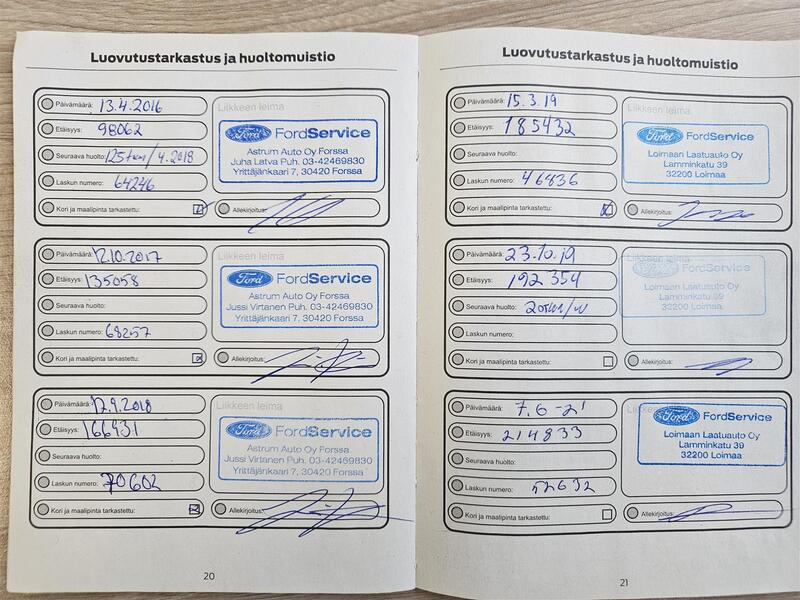 Luovutustarkastus ja huoltomuistio
Päivämäärä: 13.4.2016
Liikkeen leima
Etäisyys: 98062
Ford FordService
Astrum Auto Oy Forssa
Seuraava huolto: 125tkm/4.2018
Juha Latva Puh. 03-42469830
Yrittäjänkaari 7, 30420 Forssa
Laskun numero: 64246
Kori ja maalipinta tarkastettu:
Allekirjoitus:
Päivämäärä: 12.10.2017
Liikkeen leima
Etäisyys: 135058
Ford FordService
Astrum Auto Oy Forssa
Seuraava huolto:
Jussi Virtanen Puh. 03-42469830
Yrittäjänkaari 7, 30420 Forssa
Laskun numero: 68257
Kori ja maalipinta tarkastettu:
Allekirjoitus:
Päivämäärä: 12.9.2018
Liikkeen leima
Etäisyys: 166431
Ford FordService
Astrum Auto Oy Forssa
Seuraava huolto:
Jussi Virtanen Puh. 03-42469830
Yrittäjänkaari 7, 30420 Forssa
Laskun numero: 70602
Kori ja maalipinta tarkastettu:
Allekirjoitus:
20
Luovutustarkastus ja huoltomuistio
Päivämäärä: 15.3.19
Liikkeen leima
Etäisyys: 185432
Ford FordService
Loimaan Laatuauto Oy
Seuraava huolto:
Lamminkatu 39
32200 Loimaa
Laskun numero: 46836
Kori ja maalipinta tarkastettu:
Allekirjoitus:
Päivämäärä: 23.10.19
Etäisyys: 192354
Ford FordService
Loimaan Laatuauto Oy
Lamminkatu 39
32200 Loimaa
Seuraava huolto:
Laskun numero:
Kori ja maalipinta tarkastettu:
Allekirjoitus:
Päivämäärä: 7.6-21
Etäisyys: 214833
Ford FordService
Loimaan Laatuauto Oy
Lamminkatu 39
32200 Loimaa
Seuraava huolto:
Laskun numero: 52632
Kori ja maalipinta tarkastettu:
Allekirjoitus:
21